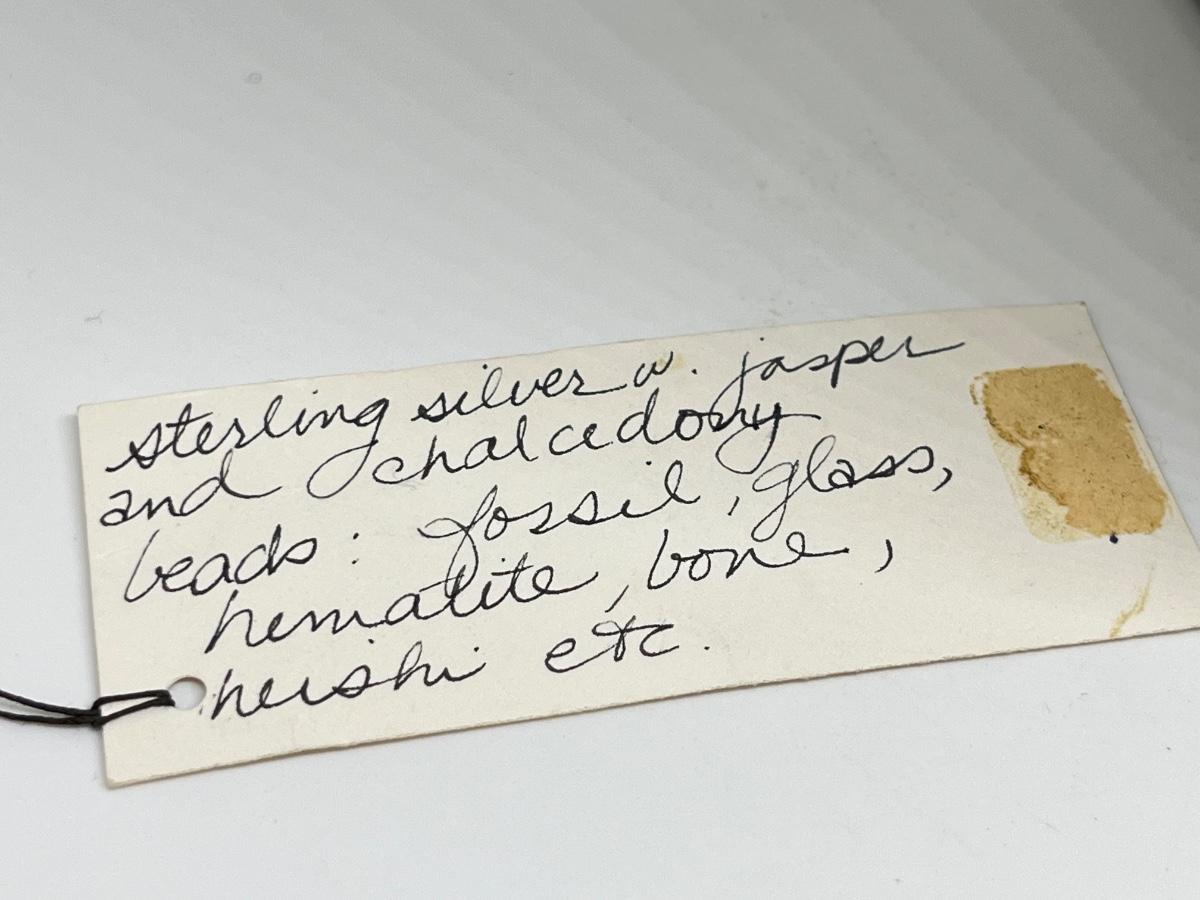 sterling silver w. jasper
and chalcedony
beads: fossil, glass,
hematite, bone,
heishi etc.